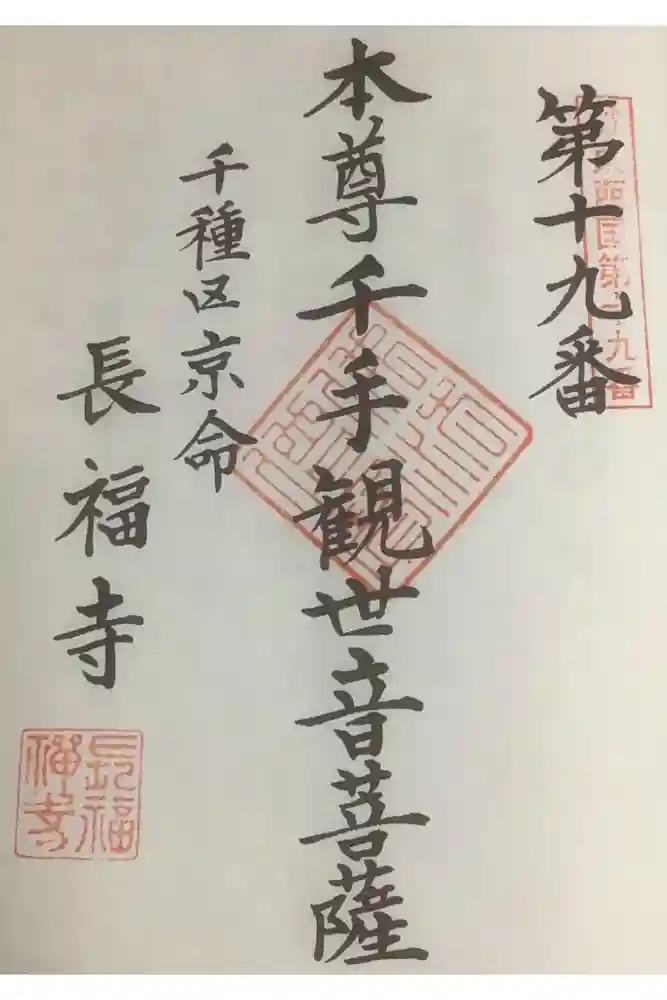 第十九番
本尊千手観世音菩薩
千種区京命
長福寺
西国第十九番
長福禅寺